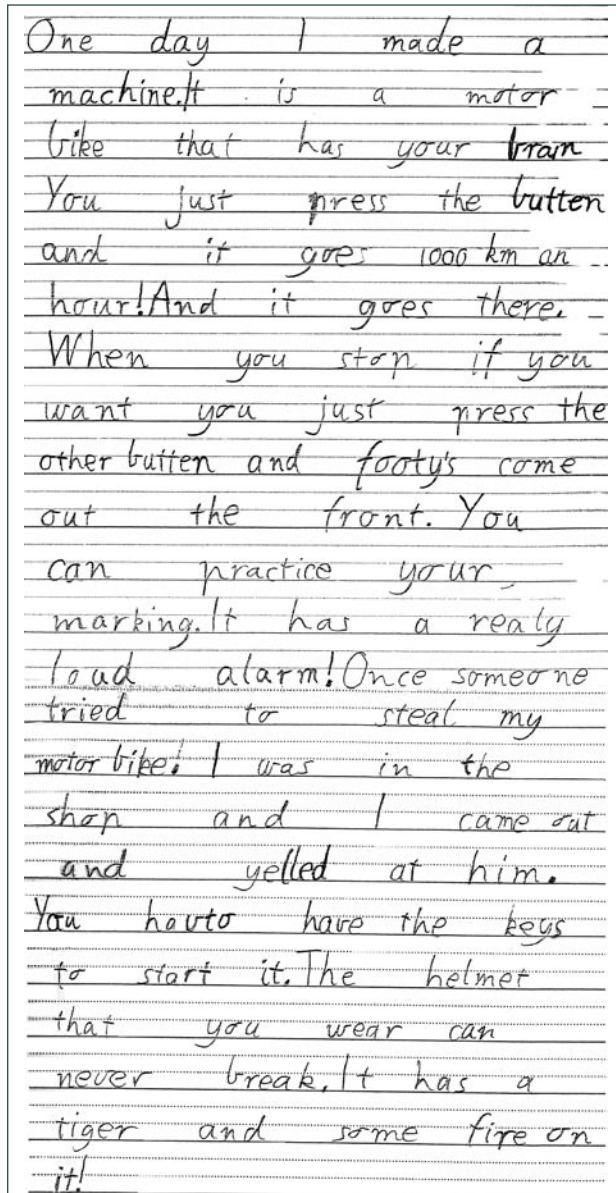 One day I made a
machine.It is a motor
bike that has your brain
You just press the butten
and it goes 1000 km an
hour!And it goes there.
When you stop if you
want you just press the
other butten and footy's come
out the front. You
can practice your
marking.It has a realy
loud alarm!Once someone
tried to steal my
motor bike! I was in the
shop and I came out
and yelled at him.
You havto have the keys
to start it.The helmet
that you wear can
never break.It has a
tiger and some fire on
it!